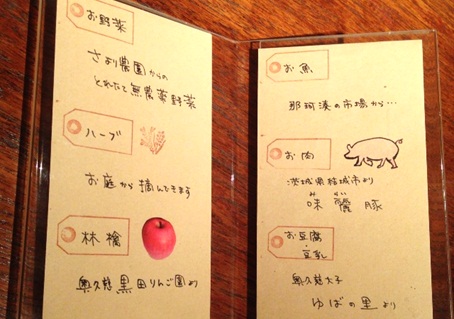 お野菜
さより農園からの
とれたて無農薬野菜
ハーブ
お庭から摘んできます
林檎
奥久慈黒田りんご園より
お魚
那珂湊の市場から…
お肉
茨城県結城市より
み らい
味麗豚
お豆腐
・豆乳
奥久慈大子
ゆばの里より